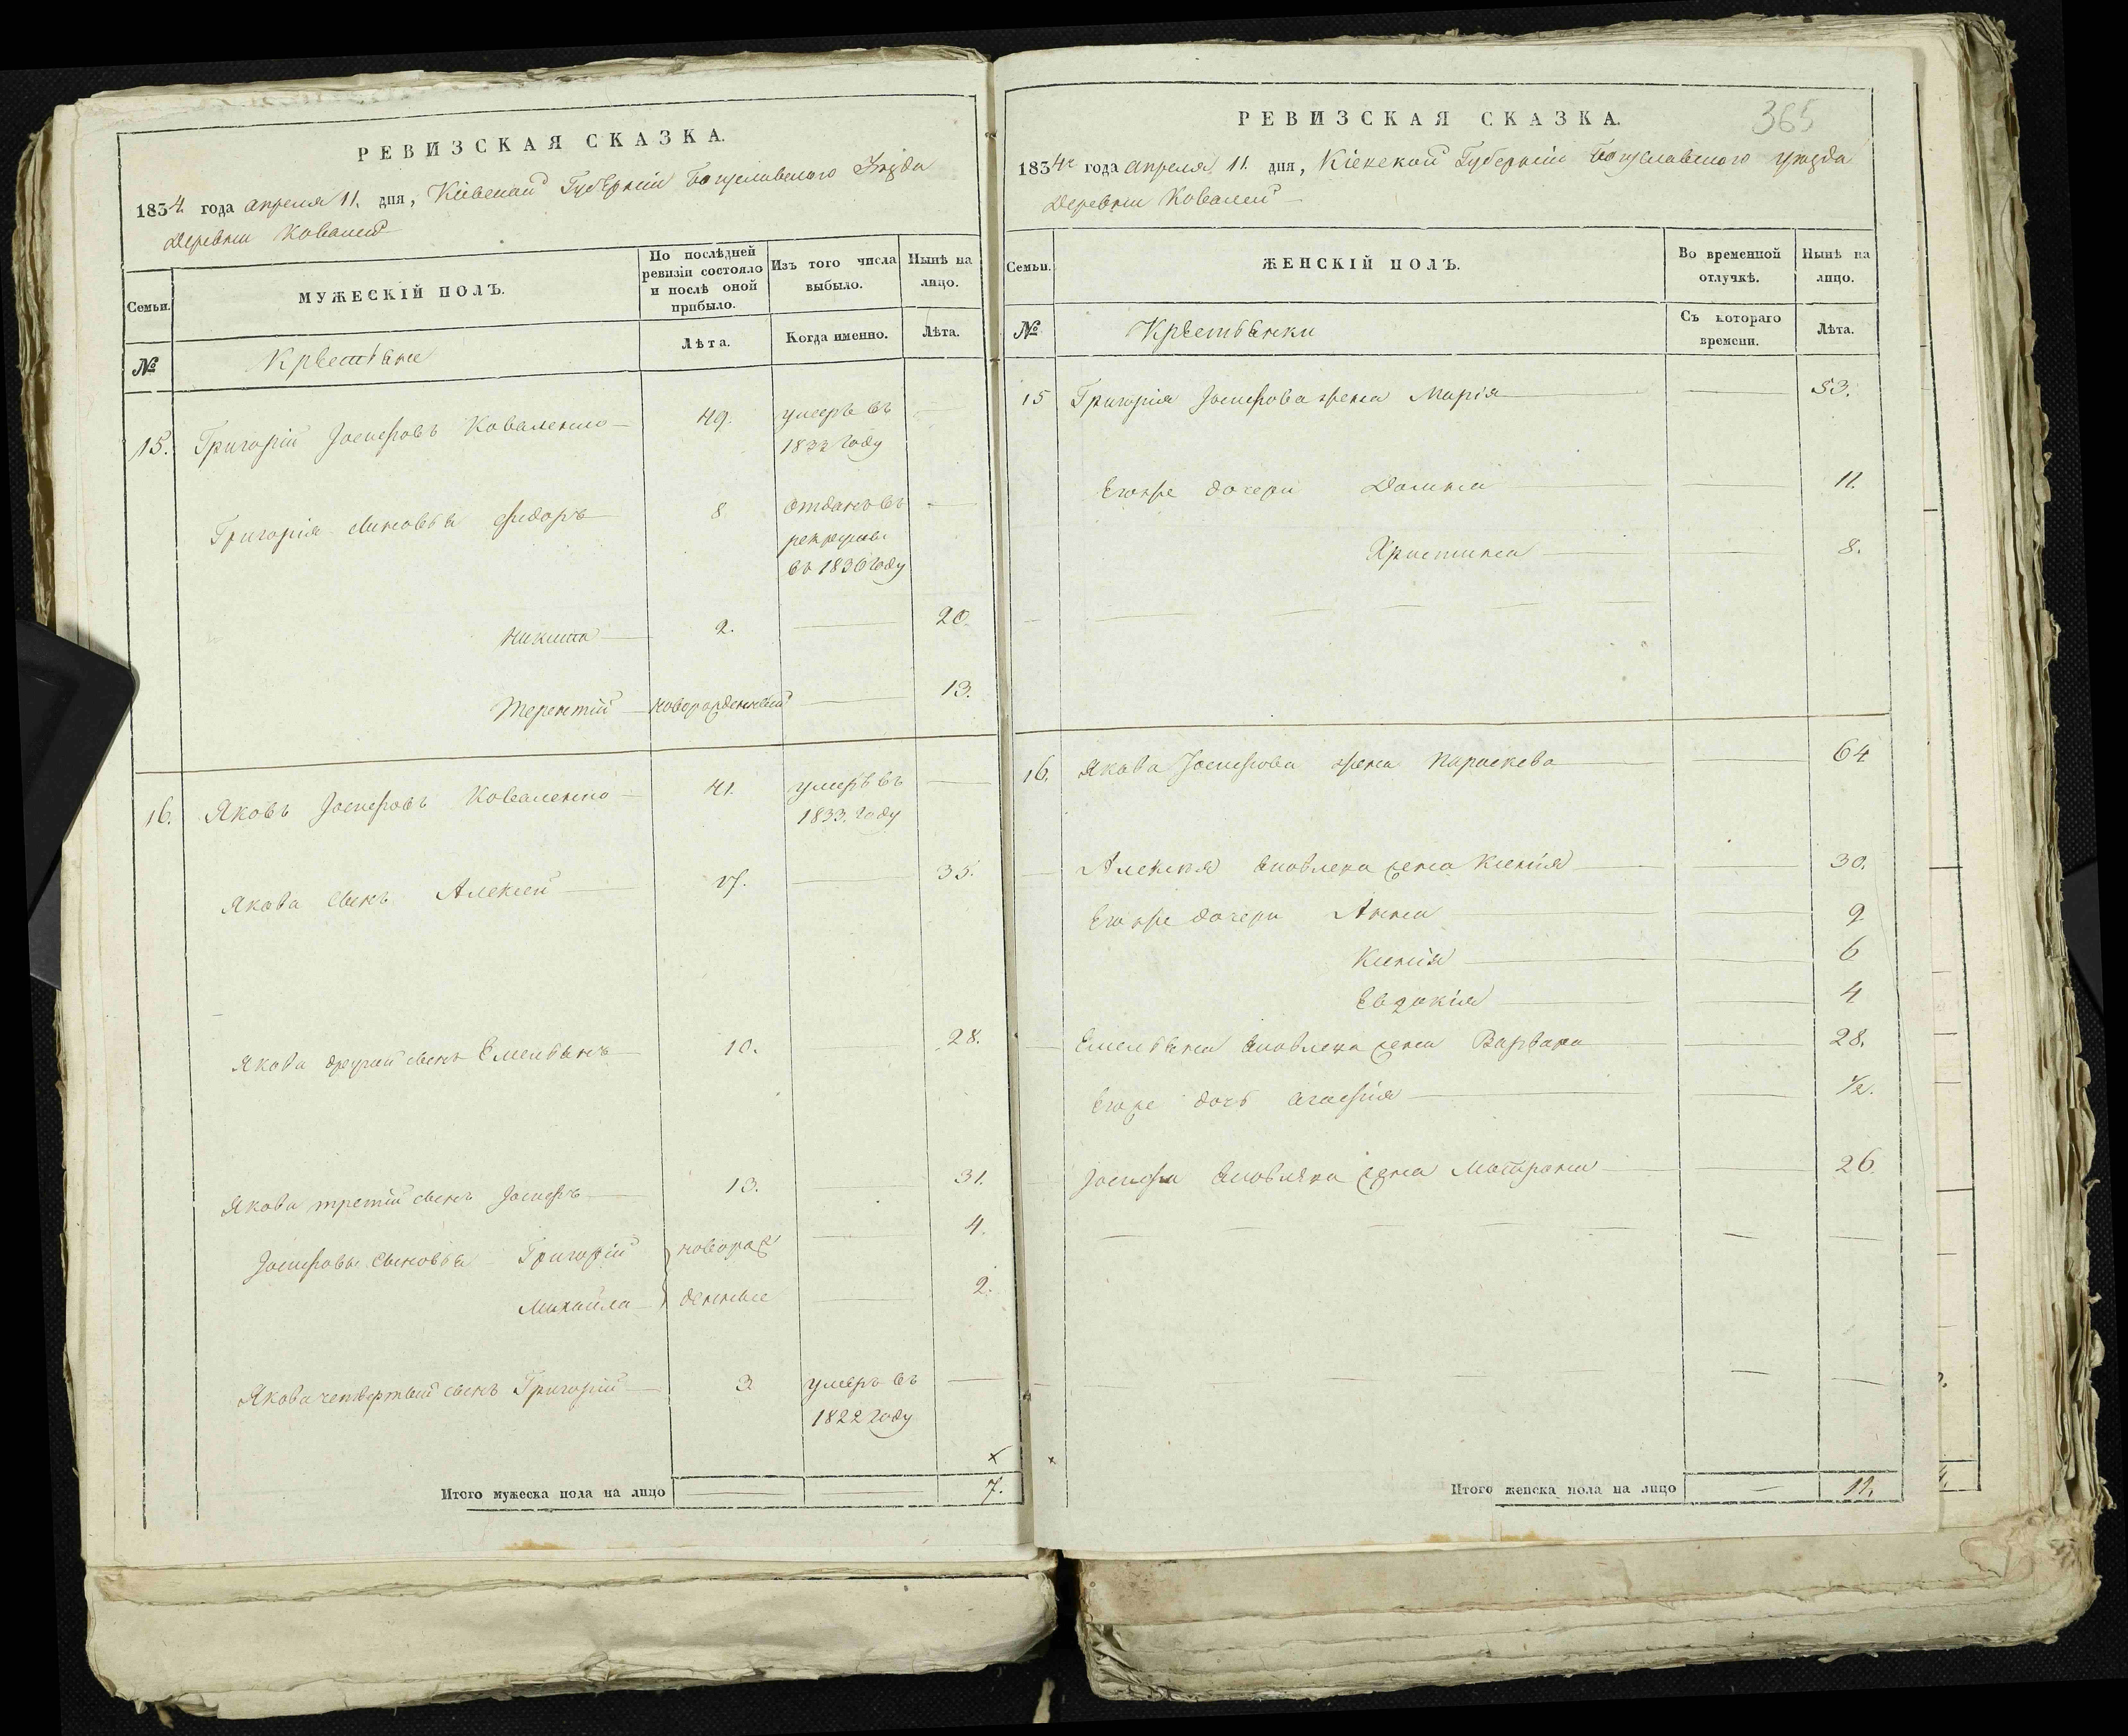 РЕВИЗСКАЯ СКАЗКА.
1834 года апреля 11. дня, Кіевской Губерніи Богуславского Уѣзда
Деревни Ковалей
Семьи.
МУЖЕСКІЙ ПОЛЪ.
По послѣдней ревизіи состояло и послѣ оной прибыло.
Изъ того числа выбыло.
Нынѣ на лицо.
№
Крестьяне
Лѣта.
Когда именно.
Лѣта.
15. Григорій Іосифовъ Коваленко 49. умеръ въ
1833 году
Григорія сыновья Фидоръ 8 отданъ въ
рекруты
въ 1830 году
Никита 2. 20.
Терентій новорожденный 13.
16. Яковъ Іосифовъ Коваленко 41. умеръ въ
1833. году
Якова сынъ Алексей 17. 35.
Якова другой сынъ Емельянъ 10. 28.
Якова третій сынъ Іосифъ 13. 31.
Іосифовы сыновья Григорій новорож 4.
Михайла денные 2.
Якова четвертый сынъ Григорій 3 умеръ въ
1822 году
Итого мужеска пола на лицо 7.
365
РЕВИЗСКАЯ СКАЗКА.
1834 года апреля 11. дня, Кіевской Губерніи Богуславского уѣзда
Деревни Ковалей
Семьи.
ЖЕНСКІЙ ПОЛЪ.
Во временной отлучкѣ.
Нынѣ на лицо.
№
Крестьянки
Съ котораго времени.
Лѣта.
15 Григорія Іосифова жена Марія 53.
Егоже дочери Домна 11.
Христина 8.
16. Якова Іосифова жена Параскева 64
Алексея Яковлева жена Ксенія 30.
Егоже дочери Анна 9
Ксенія 6
Евдокія 4
Емельяна Яковлева жена Варвара 28.
Егоже дочь Агафія 1/2.
Іосифа Яковлева жена Матрона 26
Итого женска пола на лицо 11.